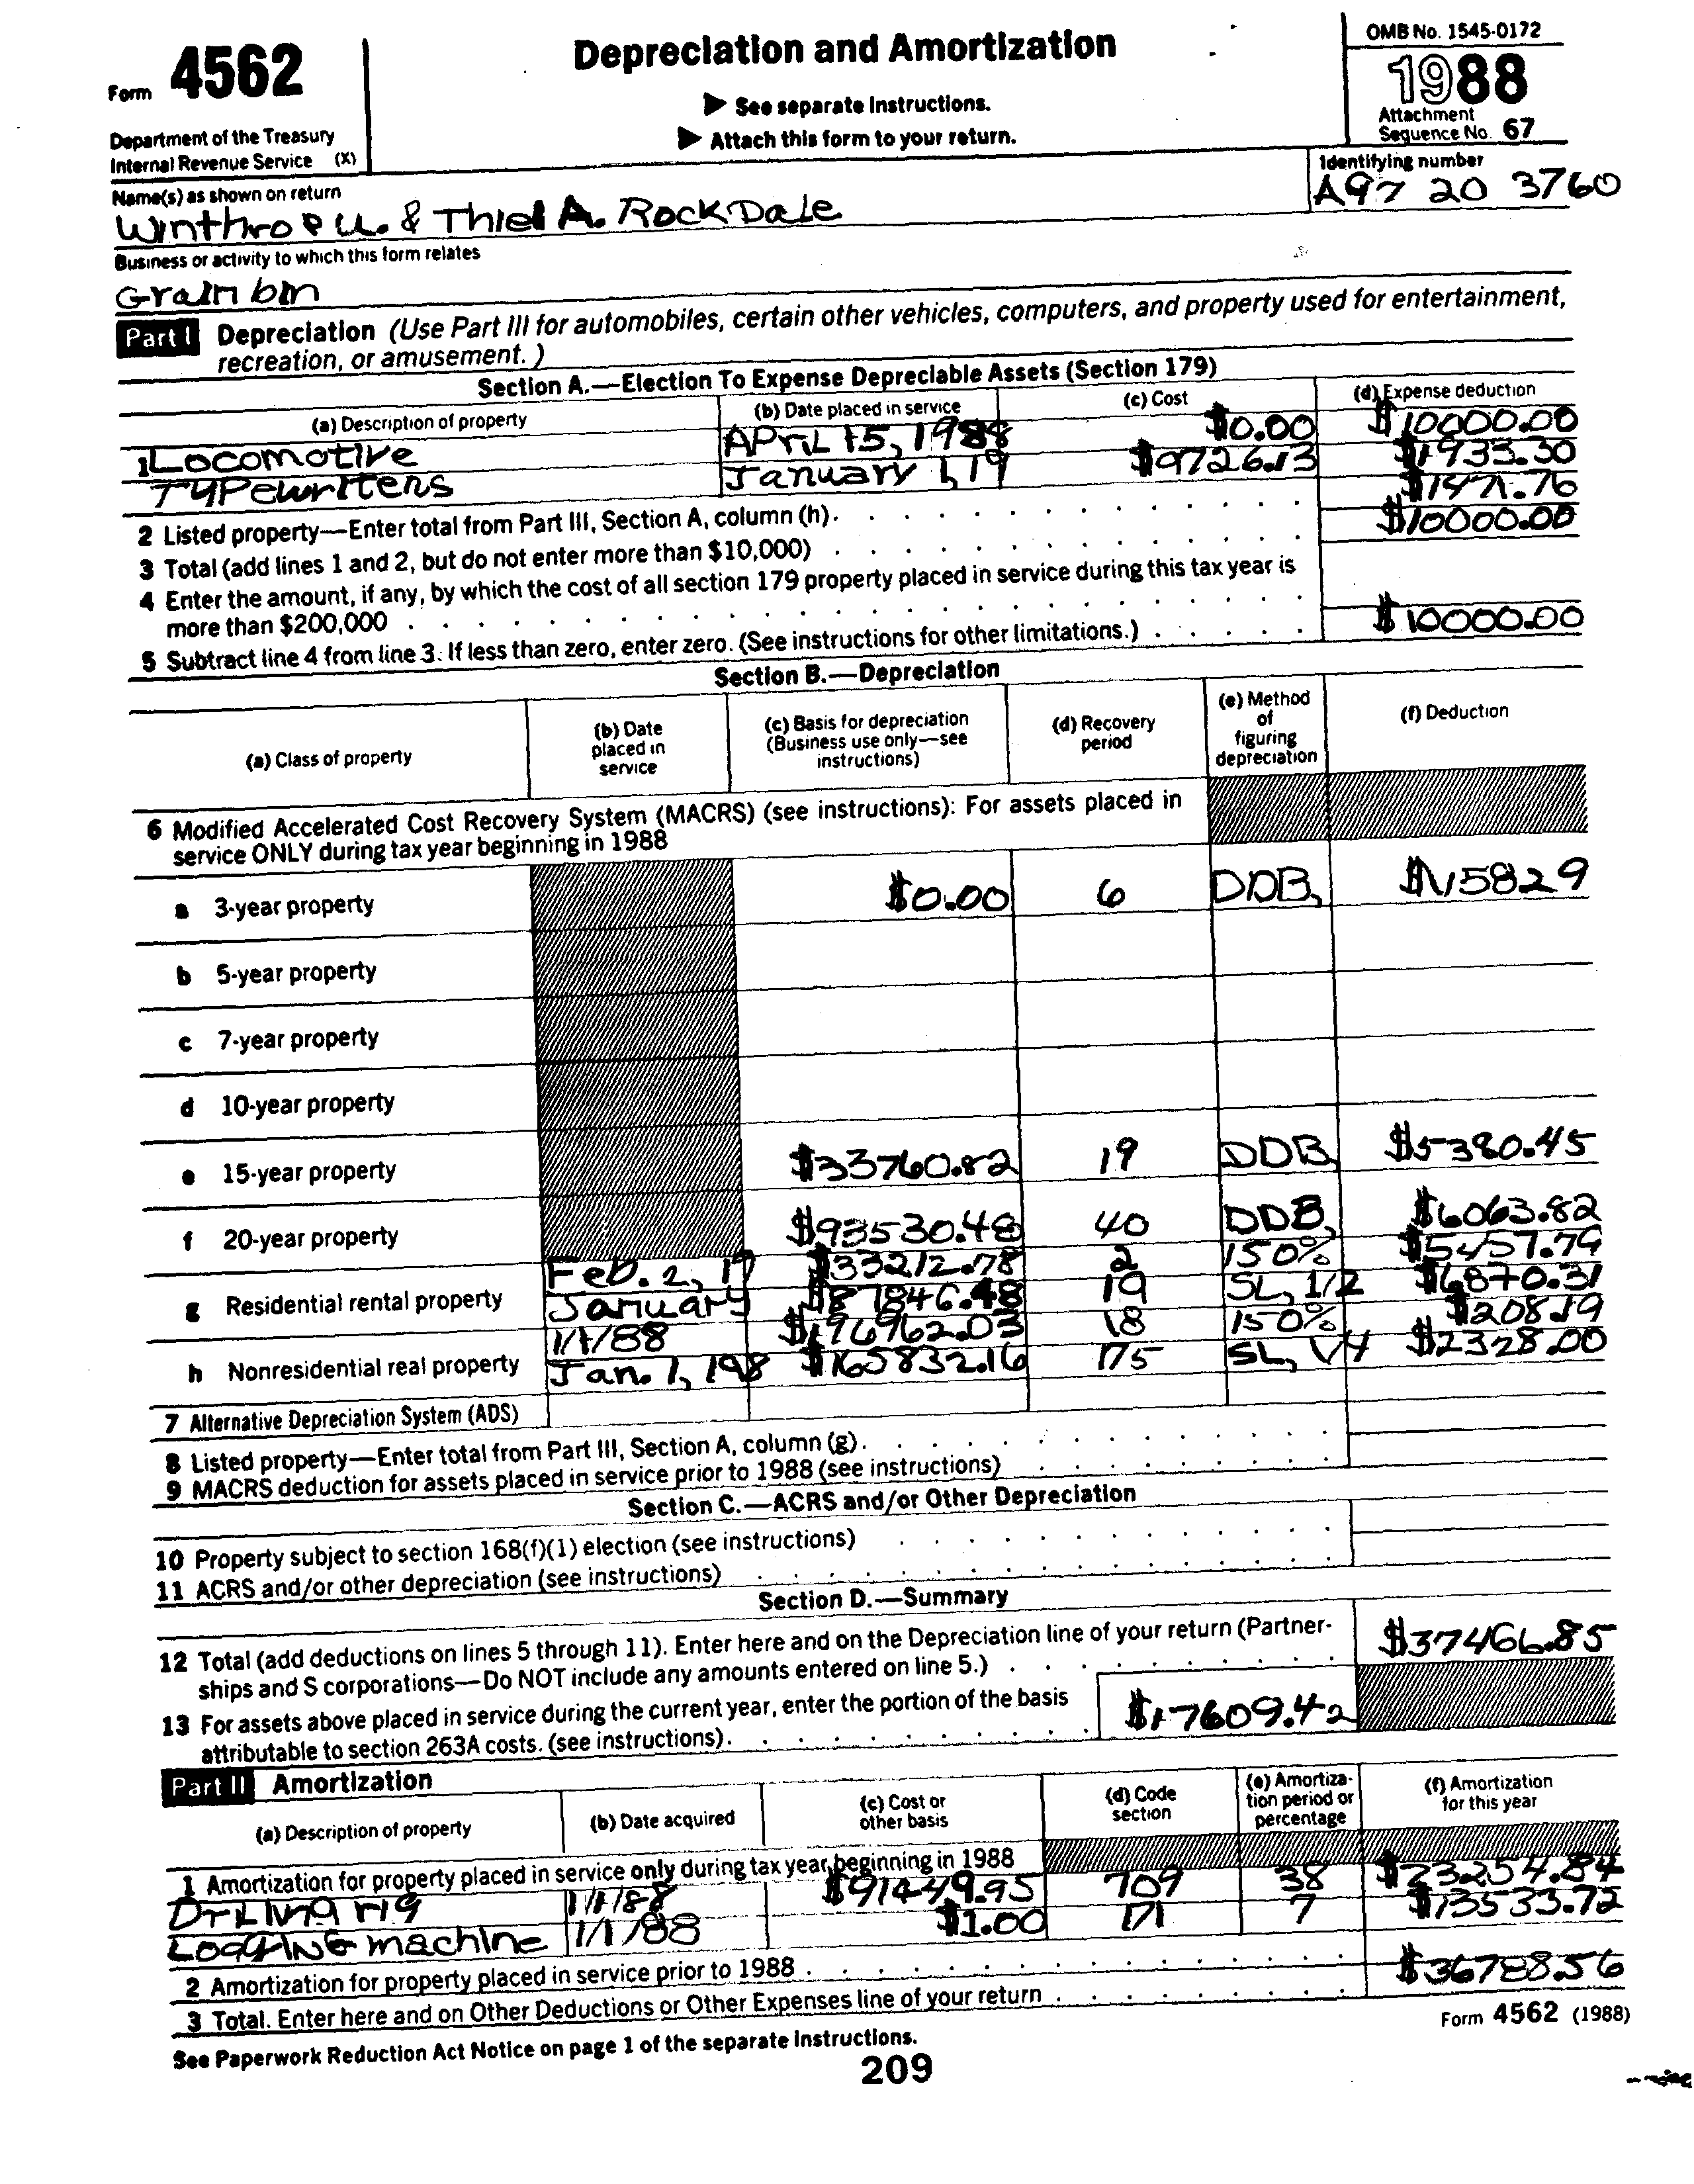 Form 4562
Department of the Treasury
Internal Revenue Service (X)
Depreciation and Amortization
▶ See separate instructions.
▶ Attach this form to your return.
OMB No. 1545-0172
1988
Attachment
Sequence No. 67
Name(s) as shown on return
Winthrop U. & Thiel A. RockDale
Identifying number
A97 20 3760
Business or activity to which this form relates
Grain bin
Part I Depreciation (Use Part III for automobiles, certain other vehicles, computers, and property used for entertainment,
recreation, or amusement.)
Section A.—Election To Expense Depreciable Assets (Section 179)
(a) Description of property (b) Date placed in service (c) Cost (d) Expense deduction
1 Locomotive APriL 15, 1988 $0.00 $10000.00
TYPewriters January 1, 19 $9726.13 $1933.30
2 Listed property—Enter total from Part III, Section A, column (h). $1471.76
3 Total (add lines 1 and 2, but do not enter more than $10,000) $10000.00
4 Enter the amount, if any, by which the cost of all section 179 property placed in service during this tax year is
more than $200,000
5 Subtract line 4 from line 3. If less than zero, enter zero. (See instructions for other limitations.) $10000.00
Section B.—Depreciation
(a) Class of property (b) Date placed in service (c) Basis for depreciation (Business use only—see instructions) (d) Recovery period (e) Method of figuring depreciation (f) Deduction
6 Modified Accelerated Cost Recovery System (MACRS) (see instructions): For assets placed in
service ONLY during tax year beginning in 1988
a 3-year property $0.00 6 DDB,
b 5-year property
c 7-year property
d 10-year property
e 15-year property $33760.82 19 DDB $5380.45
f 20-year property $93530.48 40 DDB, $6063.82
Feb. 2, 19 $33212.78 2 150% $5457.79
g Residential rental property January $87846.48 19 SL, 1/2 $6870.31
1/1/88 $196962.03 18 150% $208.19
h Nonresidential real property Jan. 1, 198 $165832.16 175 SL, 1/4 $2328.00
7 Alternative Depreciation System (ADS)
8 Listed property—Enter total from Part III, Section A, column (g).
9 MACRS deduction for assets placed in service prior to 1988 (see instructions)
Section C.—ACRS and/or Other Depreciation
10 Property subject to section 168(f)(1) election (see instructions)
11 ACRS and/or other depreciation (see instructions)
Section D.—Summary
12 Total (add deductions on lines 5 through 11). Enter here and on the Depreciation line of your return (Partner-
ships and S corporations—Do NOT include any amounts entered on line 5.) $37466.85
13 For assets above placed in service during the current year, enter the portion of the basis
attributable to section 263A costs. (see instructions). $17609.42
Part II Amortization
(a) Description of property (b) Date acquired (c) Cost or other basis (d) Code section (e) Amortiza-tion period or percentage (f) Amortization for this year
1 Amortization for property placed in service only during tax year beginning in 1988
DrLlving rig 1/1/88 $91449.95 709 38 $23254.84
LoggING machine 1/1/88 $1.00 171 7 $13533.72
2 Amortization for property placed in service prior to 1988
3 Total. Enter here and on Other Deductions or Other Expenses line of your return $36788.56
See Paperwork Reduction Act Notice on page 1 of the separate instructions.
Form 4562 (1988)
209